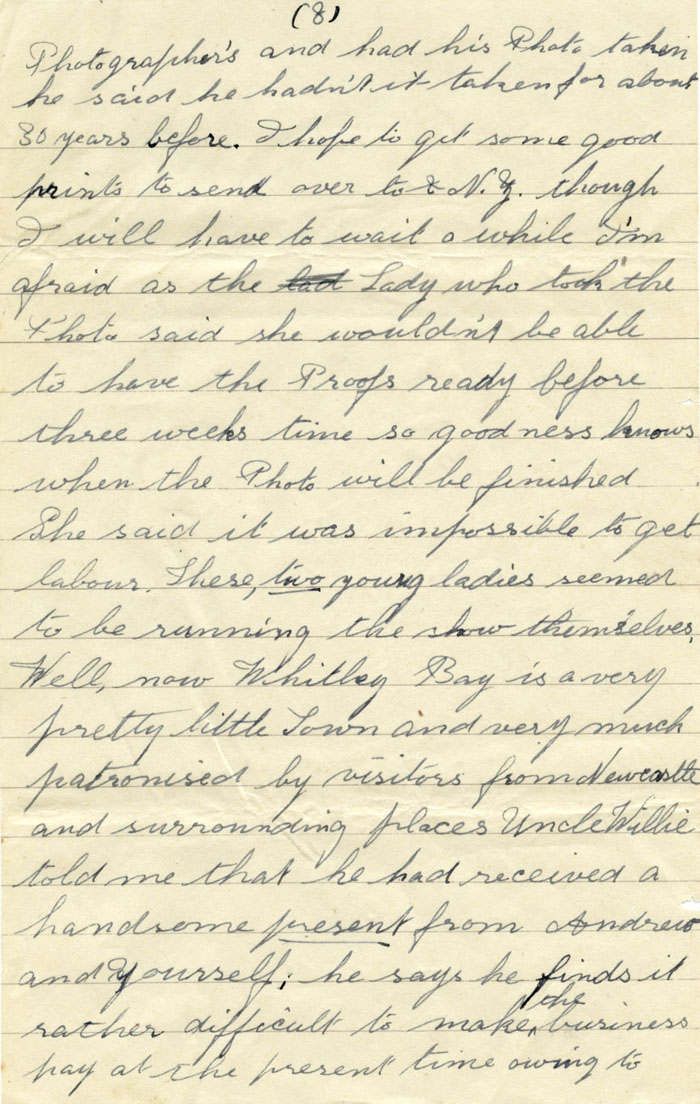 (8)
Photographer's and had his Photo taken
he said he hadn't it taken for about
30 years before. I hope to get some good
prints to send over to N.Z. though
I will have to wait a while I'm
afraid as the lad Lady who took the
Photo said she wouldn't be able
to have the Proofs ready before
three weeks time so goodness knows
when the Photo will be finished
She said it was impossible to get
labour. These, two young ladies seemed
to be running the show themselves,
Well, now Whitley Bay is a very
pretty little Town and very much
patronised by visitors from Newcastle
and surrounding places Uncle Willie
told me that he had received a
handsome present from Andrew
and Yourself; he says he finds it
rather difficult to make the business
pay at the present time owing to